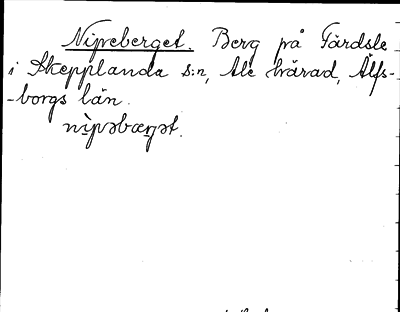 Nipeberget. Berg på Tärdsle
i Skepplanda s:n, Ale härad, Älfs-
-borgs län.
nipəbærjət.